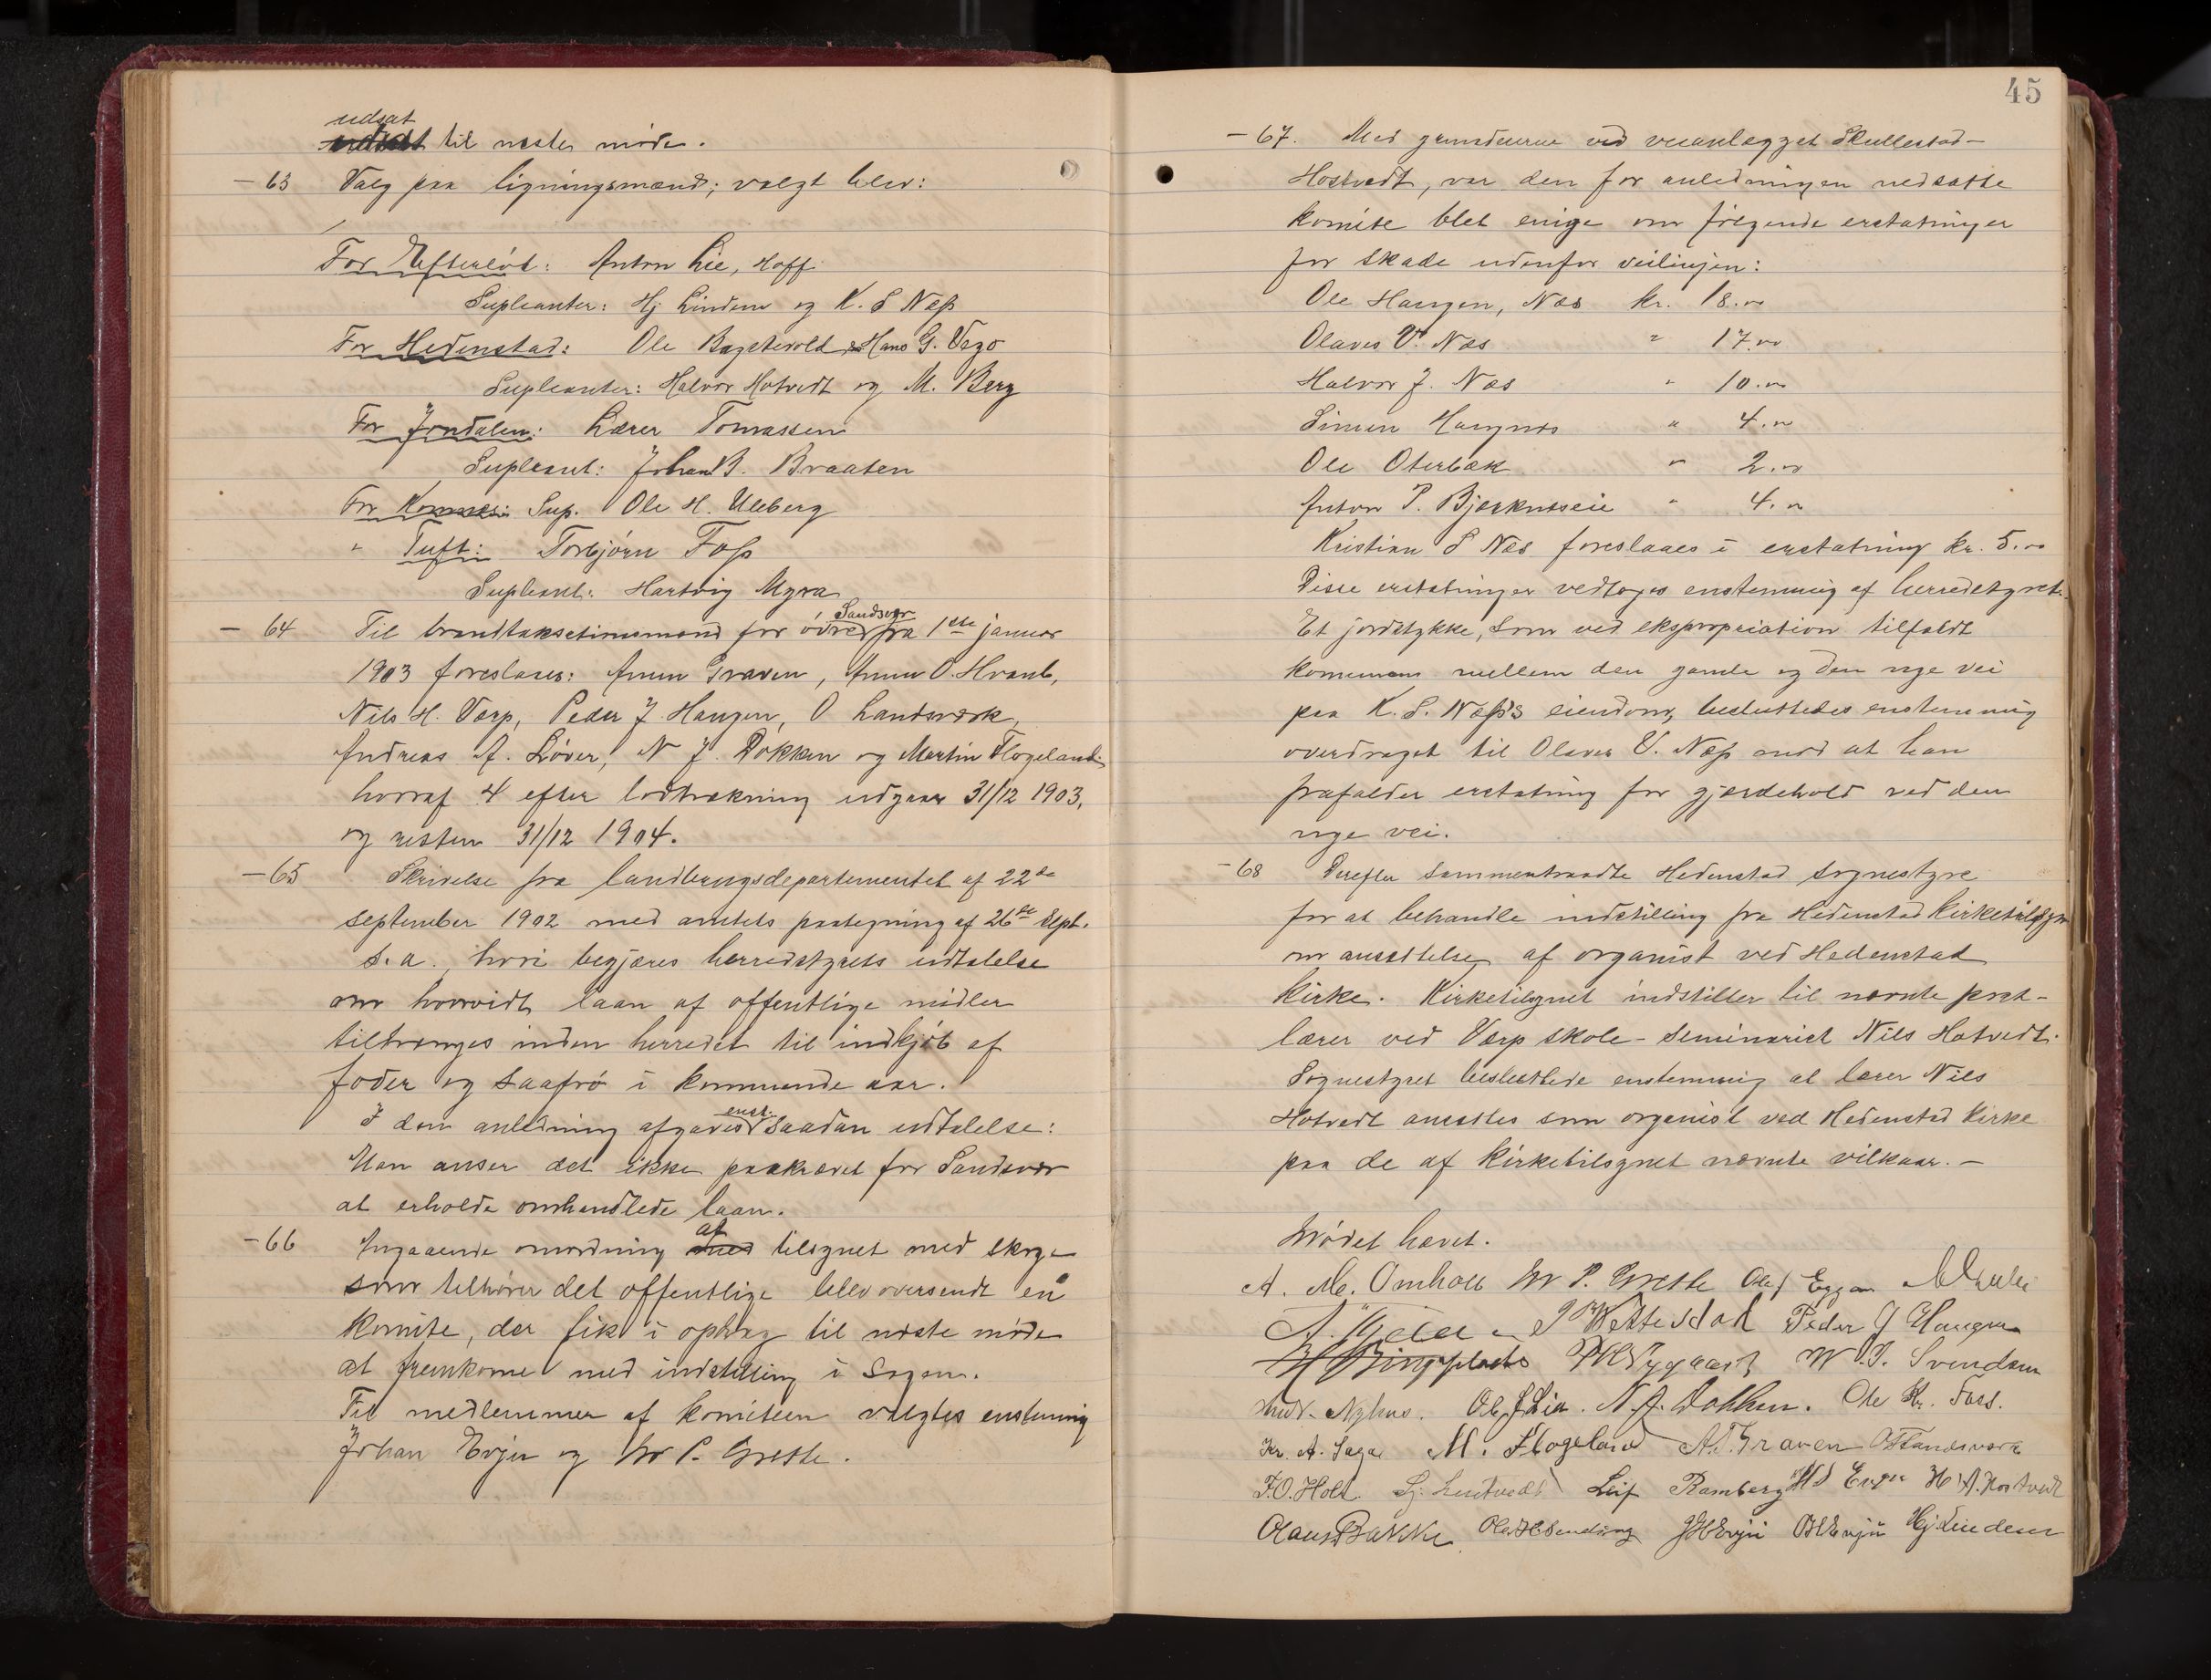 udsat
til næste møde.
– 63 Valg paa ligningsmænd; valgt blev:
For Efterløt: Anton Lie, Hoff
Supleanter: Hj Linden og K. S Næss
For Hedenstad: Ole Bagstevold & Hans G. Vego
Supleanter: Halvor Hotvedt og M. Berg
For Jondalen: Lærer Tomassen
Supleant: Johan B. Braaten
For Komnes: Sup. Ole H. Uleberg
" Tuft: Torbjørn Foss
Supleant: Hartvig Myra
– 64 Til brandtakstinsmænd for øvre Sandsvær fra 1ste januar
1903 foreslaaes: Amun Graven, Amun O. Hvamb,
Nils H. Værp, Peder J. Haugen, O Landsværk,
Andreas A. Løver, N J. Dokken og Martin Flogeland
hvoraf 4 efter lodtrækning udgaar 31/12 1903,
og resten 31/12 1904.
– 65 Skrivelse fra landbrugsdepartementet af 22de
september 1902 med amtets paategning af 26de sept.
s.a., hvori begjæres herredstyrets udtalelse
om hvorvidt laan af offentlige midler
tiltrænges inden herredet til indkjøb af
foder og saafrø i kommende aar.
I den anledning afgaves enst. saadan udtalelse:
Man anser det ikke paakrævet for Sandsvær
at erholde omhandlede laan.
– 66 Angaaende omordning af tilsynet med skoge
som tilhører det offentlige blev oversendt en
komite, der fik i opdrag til næste møde
at fremkomme med indstilling i sagen.
Til medlemmer af komiteen valgtes enstemmig
Johan Evju og Mr P. Grette.
45
– 67. Med grundeierne ved veianlægget Skullestad-
Hostvedt, var den for anledningen nedsatte
komite blet enige om følgende erstatninger
for skade udenfor veilinjen:
Ole Haugen, Næs kr. 18.00
Olaves V. Næs " 17.00
Halvor J. Næs " 10.00
Simen Haugnæs " 4.00
Ole Oterbæk " 2.00
Anton P. Bjørknesseie " 4.00
Kristian S Næs foreslaaes i erstatning kr. 5.00
Disse erstatninger vedtoges enstemmig af herredstyret.
Et jordstykke, som ved ekspropriation tilfaldt
kommunen mellem den gamle og den nye vei
paa K. S. Næss's eiendom, besluttedes enstemmig
overdraget til Olaves V. Næss mod at han
frafalder erstatning for gjærdehold ved den
nye vei.
– 68 Derefter sammentraadte Hedenstad sognestyre
for at behandle indstilling fra Hedenstad kirketilsyn
om ansættelse af organist ved Hedenstad
kirke. Kirketilsynet indstiller til nævnte post –
lærer ved Værp skole – seminarist Nils Hotvedt.
Sognestyret besluttede enstemmig at lærer Nils
Hotvedt ansættes som organist ved Hedenstad kirke
paa de af kirketilsynet nævnte vilkaar. –
Mødet hævet.
A. M. Omholt Mr P. Grette Olaf Eggen
P Wettestad Peder J Haugen
Bingeplads P Nygaard W. J. Svendsen
Nyhus. Ole J Lia. N. J. Dokken. Ole Kr. Foss.
Kr. A. Saga M. Flogeland A. T. Graven O Landsværk
T. O. Holt Leif Ramberg H S Evju H A. Hostvedt
Olaus Bakke Ole H Sending J H Evju O H Evju Hj. Linden